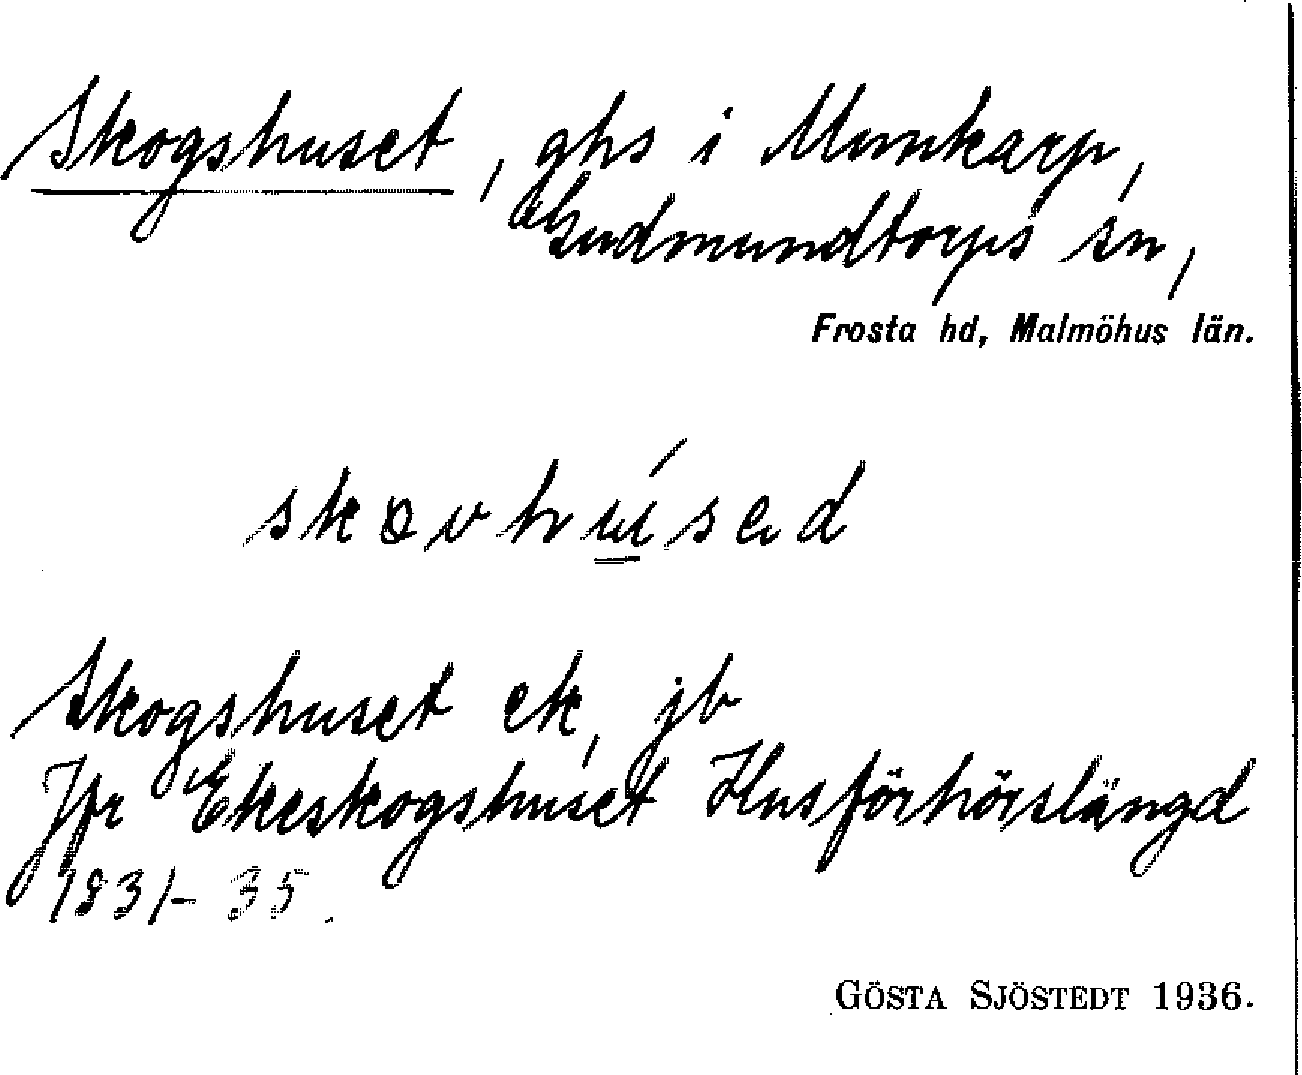 Skogshuset, ghs i Munkarp,
Gudmundtorps sn,
Frosta hd, Malmöhus län.
skovhúsed
Skogshuset ek, jb
Jfr Ekeskogshuset Husförhörslängd
1831-35.
GÖSTA SJÖSTEDT 1936.